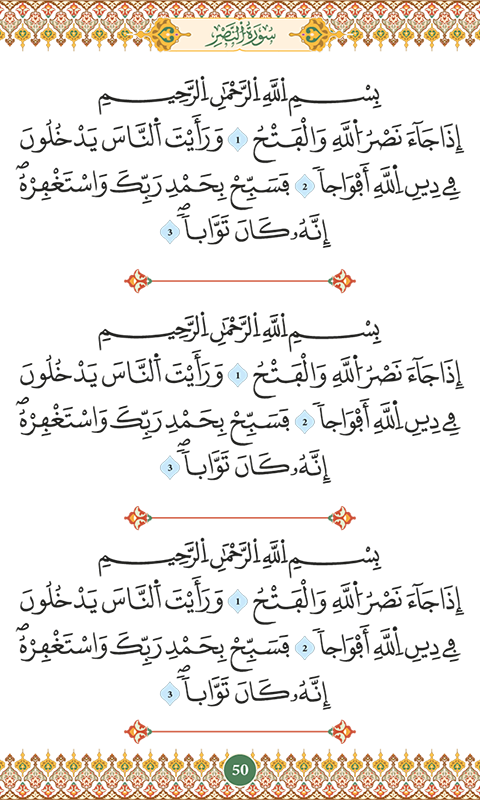 سُورَةُ النَّصْرِ
بِسْمِ اِ۬للَّهِ اِ۬لرَّحْمَٰنِ اِ۬لرَّحِيمِ
إِذَا جَآءَ نَصْرُ اُ۬للَّهِ وَالْفَتْحُ 1 وَرَأَيْتَ اَ۬لنَّاسَ يَدْخُلُونَ
فِے دِينِ اِ۬للَّهِ أَفْوَاجاٗ 2 فَسَبِّحْ بِحَمْدِ رَبِّكَ وَاسْتَغْفِرْهُۖ
إِنَّهُۥ كَانَ تَوَّاباَۢۖ 3
بِسْمِ اِ۬للَّهِ اِ۬لرَّحْمَٰنِ اِ۬لرَّحِيمِ
إِذَا جَآءَ نَصْرُ اُ۬للَّهِ وَالْفَتْحُ 1 وَرَأَيْتَ اَ۬لنَّاسَ يَدْخُلُونَ
فِے دِينِ اِ۬للَّهِ أَفْوَاجاٗ 2 فَسَبِّحْ بِحَمْدِ رَبِّكَ وَاسْتَغْفِرْهُۖ
إِنَّهُۥ كَانَ تَوَّاباَۢۖ 3
بِسْمِ اِ۬للَّهِ اِ۬لرَّحْمَٰنِ اِ۬لرَّحِيمِ
إِذَا جَآءَ نَصْرُ اُ۬للَّهِ وَالْفَتْحُ 1 وَرَأَيْتَ اَ۬لنَّاسَ يَدْخُلُونَ
فِے دِينِ اِ۬للَّهِ أَفْوَاجاٗ 2 فَسَبِّحْ بِحَمْدِ رَبِّكَ وَاسْتَغْفِرْهُۖ
إِنَّهُۥ كَانَ تَوَّاباَۢۖ 3
50